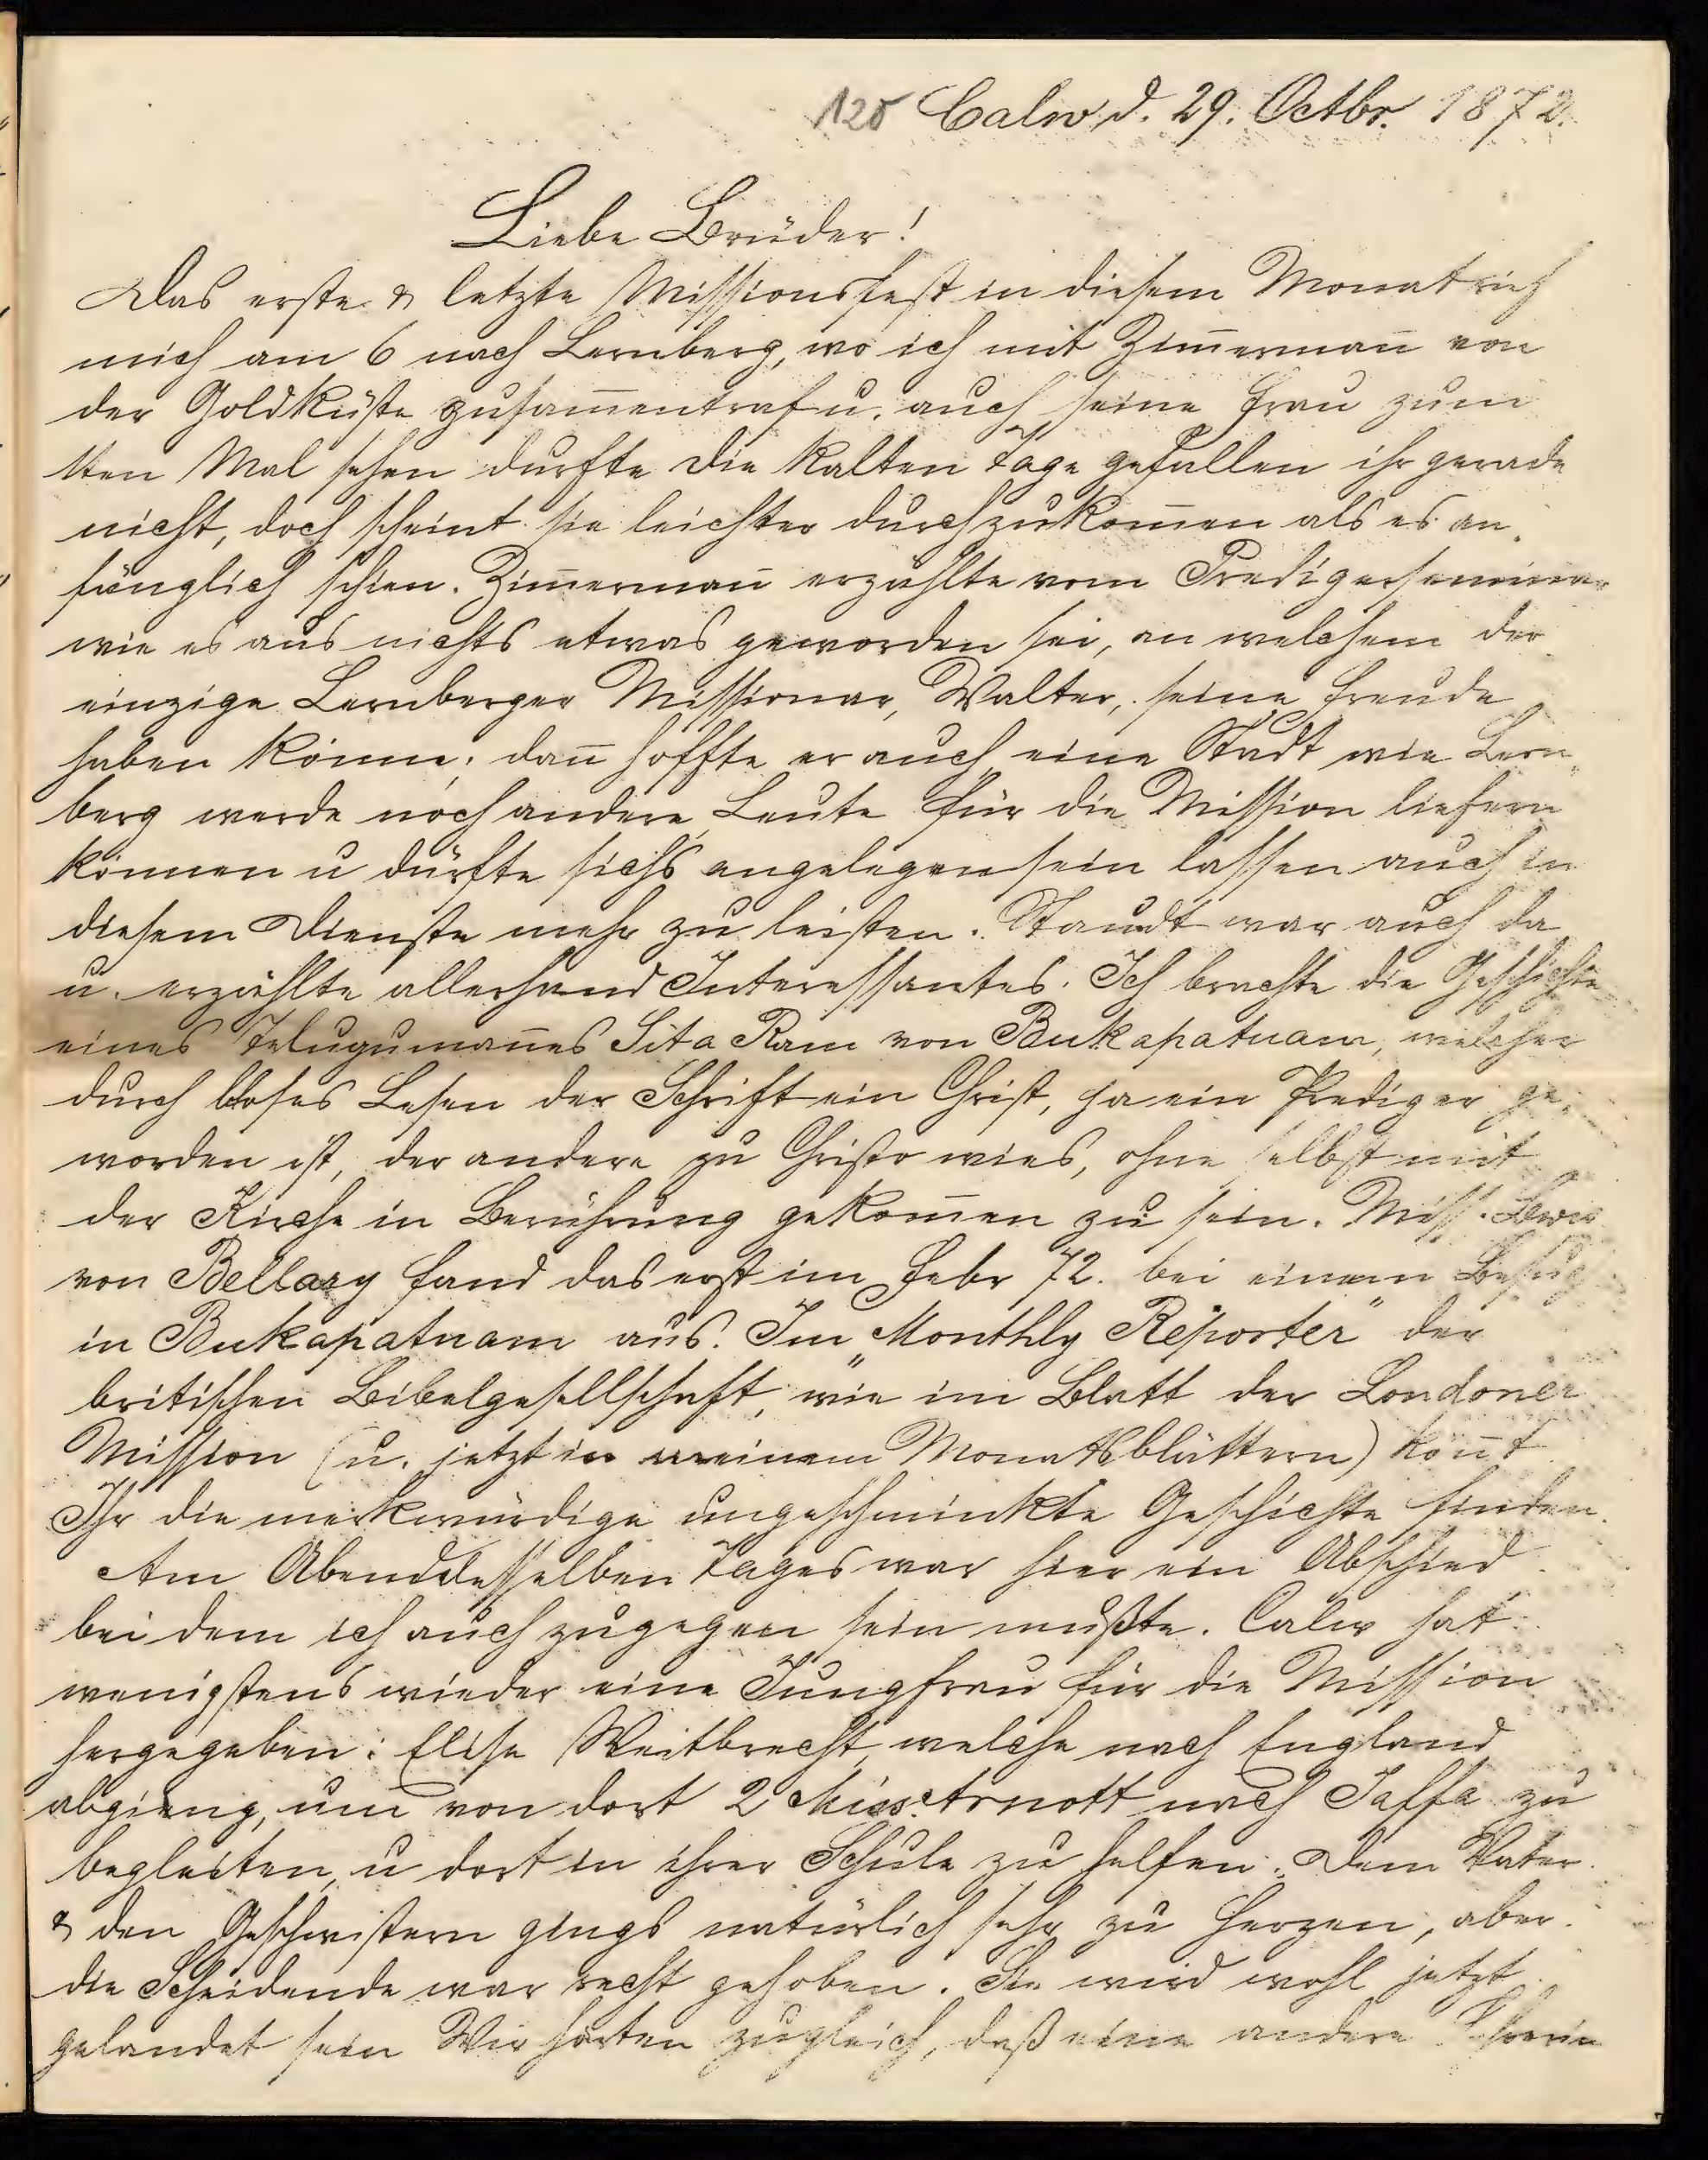 120 Calw d. 29. Octbr. 1872.
Liebe Brüder!
Das erste & letzte Missionsfest in diesem Monat rief
mich am 6 nach Bernberg, wo ich mit Zim̄erman̄ von
der Goldküste zusam̄entraf u. auch seine Frau zum
1ten Mal sehen durfte die kalten Tage gefallen ihr gerade
nicht, doch scheint sie leichter durchzukom̄en als es an-
fänglich schien. Zim̄erman̄ erzählte vom Predigerseminar
wie es aus nichts etwas geworden sei, an welchem der
einzige Bernberger Missionar, Walter, seine Freude
haben könne; dan̄ hoffte er auch eine Stadt wie Bern-
berg werde noch andere Leute für die Mission liefern
können u dürfte sichs angelegen sein lassen auch in
diesem Dienste mehr zu leisten. Staudt war auch da
u. erzählte allerhand Interessantes. Ich brachte die Geschichte
eines Teluguman̄es Sita Ram von Bukapatnam, welcher
durch bloses Lesen der Schrift ein Christ, ja ein Prediger ge-
worden ist, der andere zu Christo wies, ohne selbst mit
der Kirche in Berührung gekom̄en zu sein. Miss. Lewis
von Bellary fand das erst im Febr 72. bei einem Besuch
in Bukapatnam aus. Im „Monthly Reporter" der
britischen Bibelgesellschaft, wie im Blatt der Londoner
Mission (u. jetzt in meinem Monatsblättern) kön̄t
Ihr die merkwürdige ungeschminkte Geschichte finden.
Am Abend desselben Tages war hier ein Abschied
bei dem ich auch zugegen sein mußte. Calw hat
wenigstens wieder eine Jungfrau für die Mission
hergegeben: Elise Weitbrecht, welche nach England
abgieng, um von dort 2 Miss. Arnott nach Jaffa zu
begleiten, u dort in ihrer Schule zu helfen. Dem Vater
& den Geschwistern gings natürlich sehr zu Herzen, aber
die Scheidende war recht gehoben. Sie wird wohl jetzt
gelandet sein Wir hörten zugleich, daß eine andere